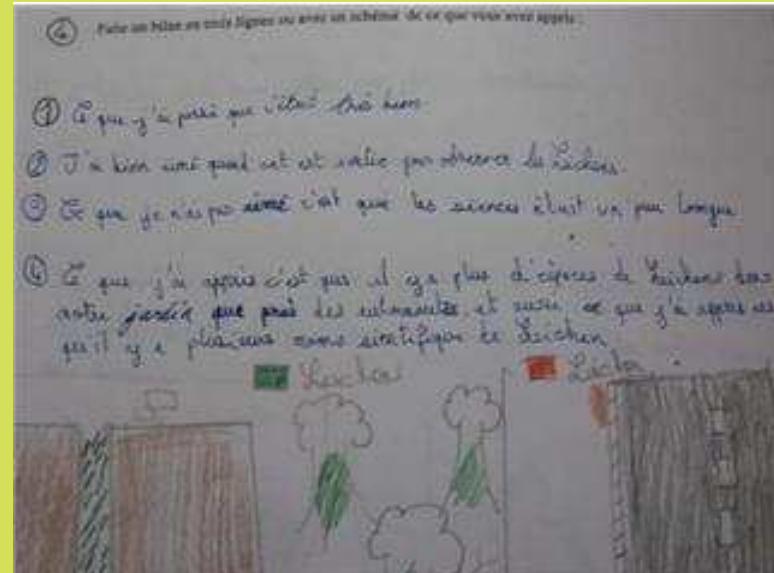 ④ Faite un bilan en trois lignes ou avec un schéma de ce que vous avez appris :
① Ce que j'ai pensé que c'était très bien
② J'ai bien aimé quand est sortie pour observer les lichens.
③ Ce que je n'ai pas aimé c'est que les séances était un peu longue
④ Ce que j'ai appris c'est que il y a plus d'éspeces de Leichens dans
notre jardin que près des et aussi ce que j'ai appris
qu'il y a plusieurs noms sientifique de Leichen
Lichen
Lichen